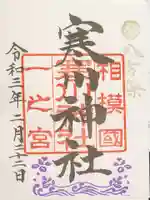 八方除
相模國
一之宮
寒川神社
令和三年二月二十二日